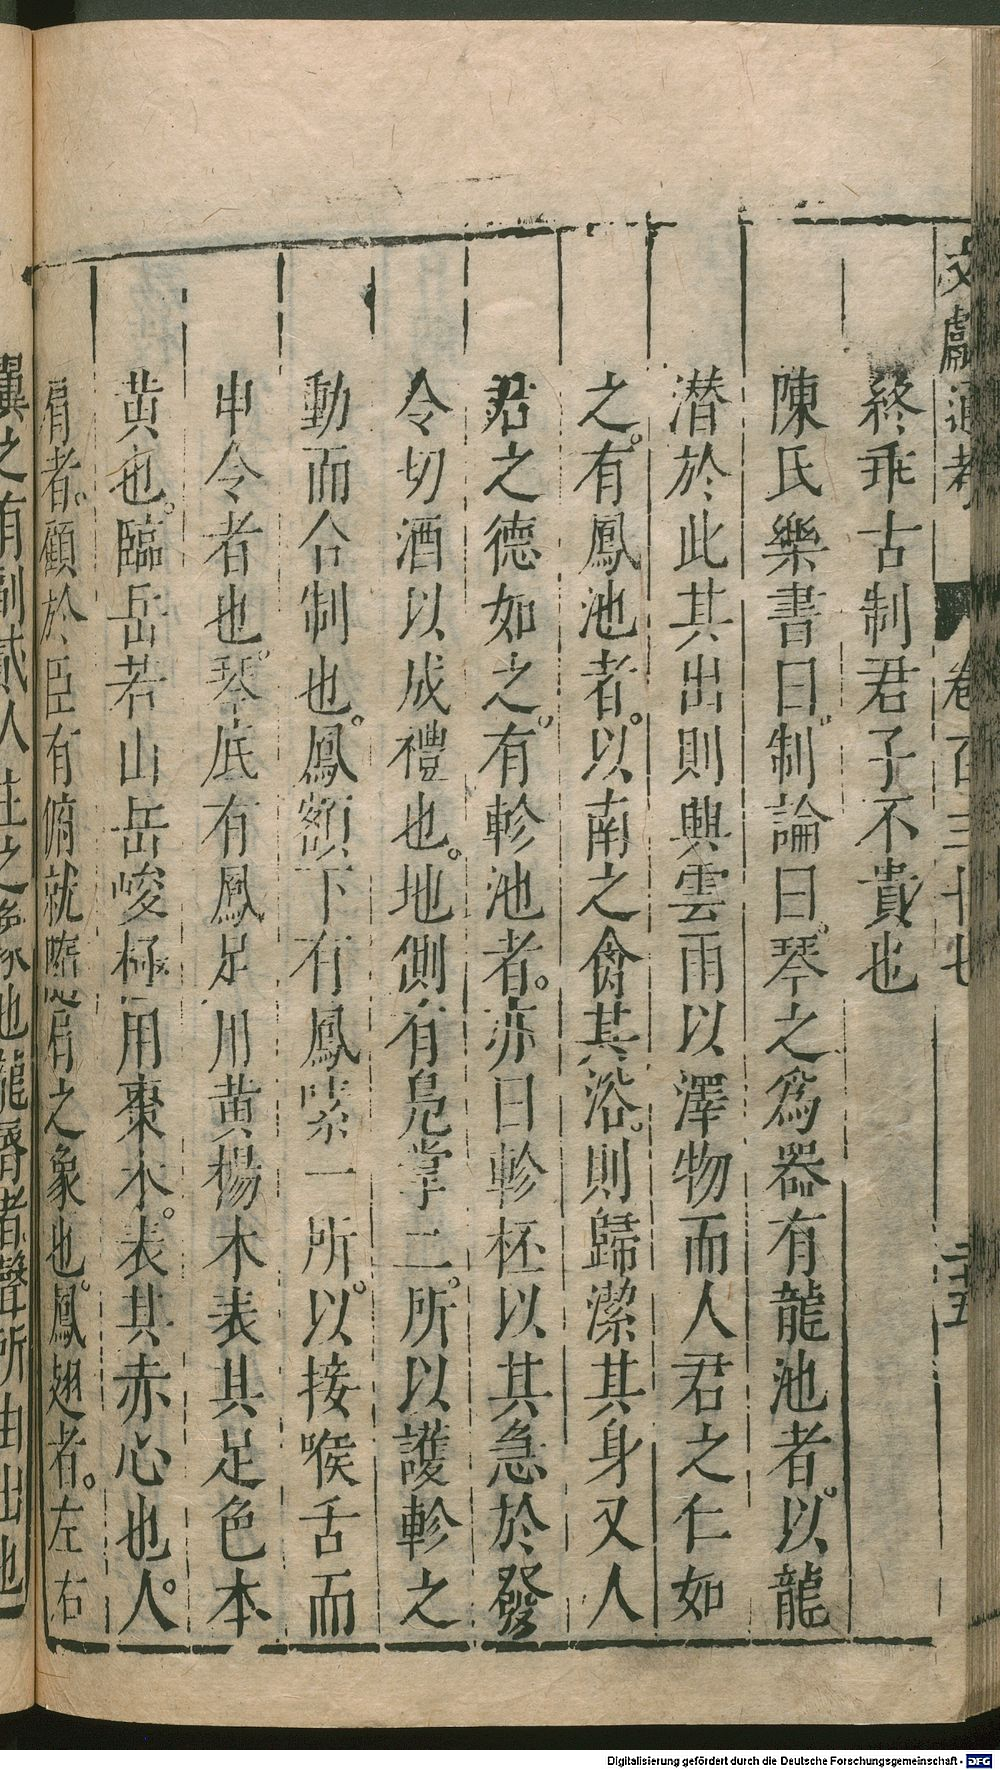 文獻通考 卷百三十七 二十五
終乖古制君子不貴也
陳氏樂書曰制論曰琴之爲器有龍池者以龍
潜於此其出則興雲雨以澤物而人君之仁如
之有鳳池者以南之禽其浴則歸潔其身又人
君之德如之有軫池者亦曰軫柸以其急於發
令切酒以成禮也地側有鳧掌二所以護軫之
動而合制也鳳額下有鳳嗉一所以接喉舌而
申令者也琴底有鳳足用黄楊木表其足色本
黄也臨岳若山岳峻極用棗木表其赤心也人
肩者顧於臣有俯就隨肩之象也鳳翅者左右
翼之有副貳人主之象也龍唇者聲所由出也
Digitalisierung gefördert durch die Deutsche Forschungsgemeinschaft - DFG